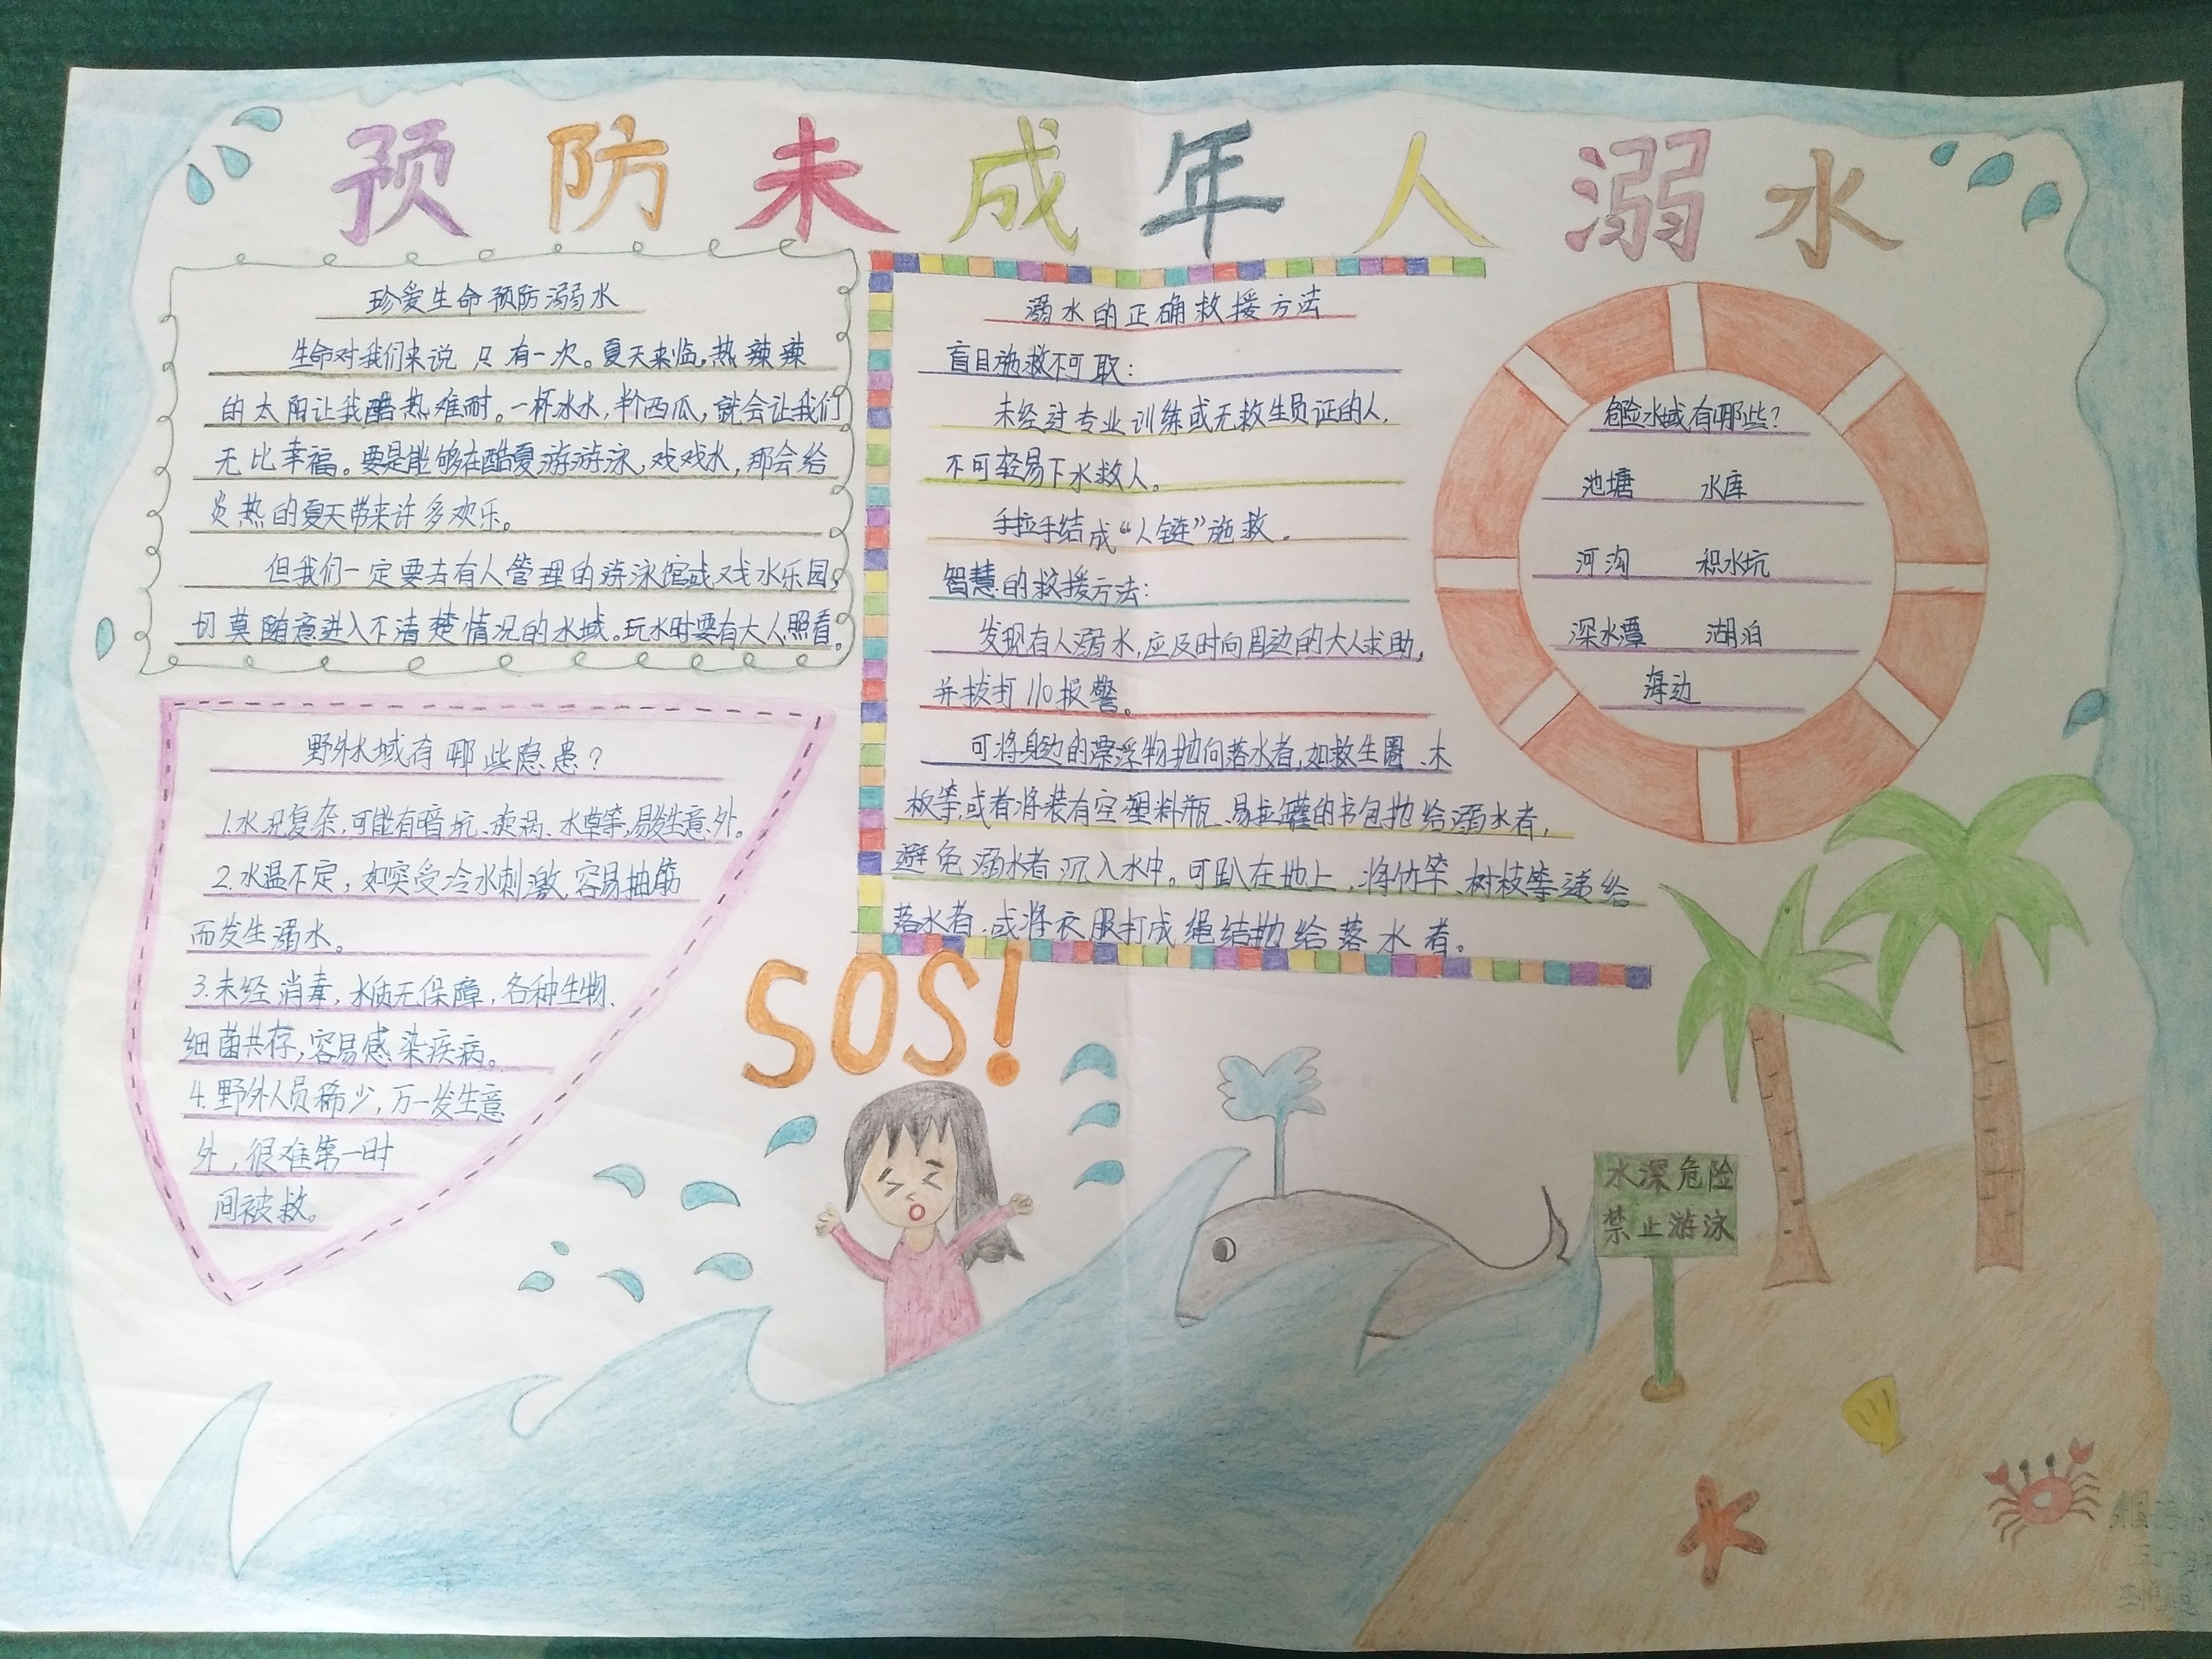 预防未成年人溺水
珍爱生命预防溺水
生命对我们来说只有一次。夏天来临,热辣辣
的太阳让我酷热难耐。一杯冰水,半个西瓜,就会让我们
无比幸福。要是能够在酷夏游游泳,戏戏水,那会给
炎热的夏天带来许多欢乐。
但我们一定要去有人管理的游泳馆或戏水乐园,
切莫随意进入不清楚情况的水域。玩水时要有大人照看。
野外水域有哪些隐患?
1.水况复杂,可能有暗坑、漩涡、水草等,易发生意外。
2.水温不定,如突受冷水刺激,容易抽筋
而发生溺水。
3.未经消毒,水质无保障,各种生物、
细菌共存,容易感染疾病。
4.野外人员稀少,万一发生意
外,很难第一时
间被救。
溺水的正确救援方法
盲目施救不可取:
未经过专业训练或无救生员证的人,
不可轻易下水救人。
手拉手结成“人链”施救。
智慧的救援方法:
发现有人溺水,应及时向周边的大人求助,
并拔打110报警。
可将身边的漂浮物抛向落水者,如救生圈、木
板等,或者将装有空塑料瓶、易拉罐的书包抛给溺水者,
避免溺水者沉入水中。可趴在地上,将竹竿、树枝等递给
落水者,或将衣服打成绳结抛给落水者。
危险水域有哪些?
池塘 水库
河沟 积水坑
深水潭 湖泊
海边
SOS!
水深危险
禁止游泳